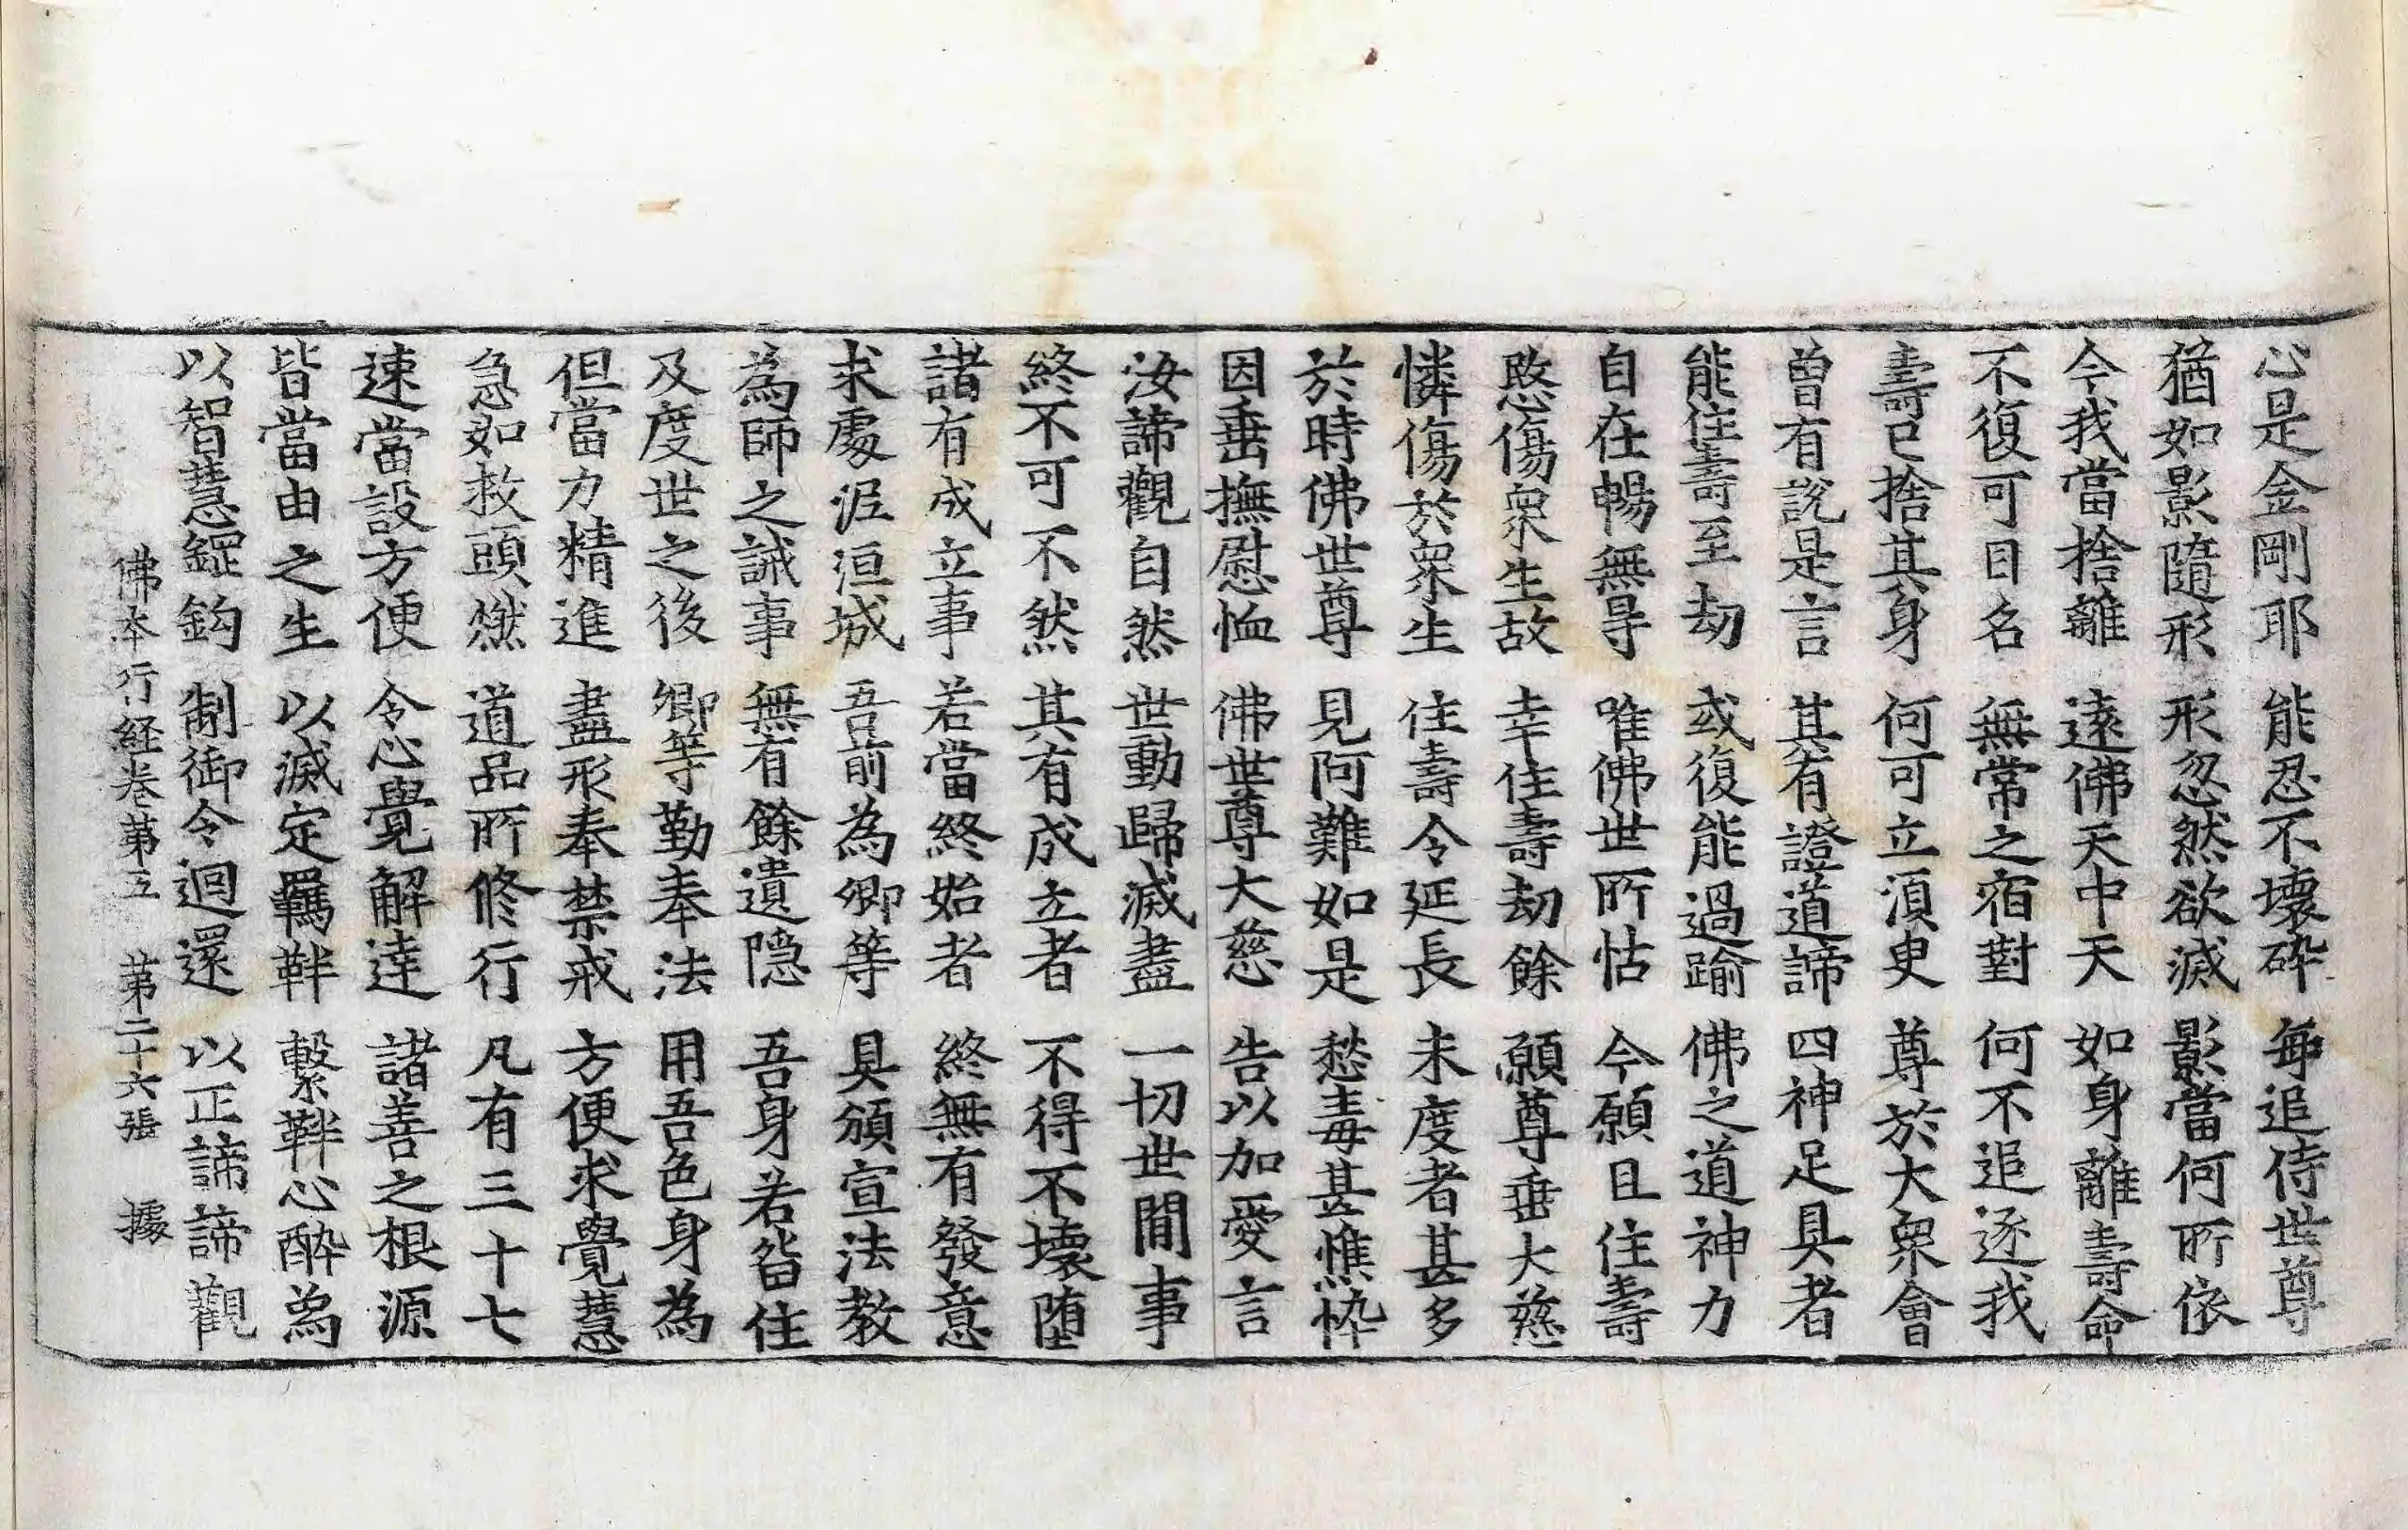 心是金剛耶 能忍不壞碎 每追侍世尊
猶如影隨形 形忽然欲滅 影當何所依
今我當捨離 遠佛天中天 如身離壽命
不復可目名 無常之宿對 何不追逐我
壽已捨其身 何可立湏臾 尊於大衆會
曽有說是言 其有證道諦 四神足具者
能住壽至劫 或復能過踰 佛之道神力
自在暢無㝵 唯佛世所怙 今願且住壽
愍傷衆生故 幸住壽劫餘 願尊垂大慈
憐傷於衆生 住壽令延長 未度者甚多
於時佛世尊 見阿難如是 愁毒甚憔忰
因垂撫慰恤 佛世尊大慈 告以加愛言
汝諦觀自然 世動歸滅盡 一切世間事
終不可不然 其有成立者 不得不壞墮
諸有成立事 若當終始者 終無有發意
求處泥洹城 吾前為卿等 具頒宣法教
為師之誡事 無有餘遺隐 吾身若留住
及度世之後 卿等勤奉法 用吾色身為
但當力精進 盡形奉禁戒 方便求覺慧
急如救頭燃 道品所修行 凡有三十七
速當設方便 令心覺解達 諸善之根源
皆當由之生 以滅定羈靽 繫靽心醉為
以智慧鋞鈎 制御令迴還 以正諦諦觀
佛本行経卷第五 第二十六張 據